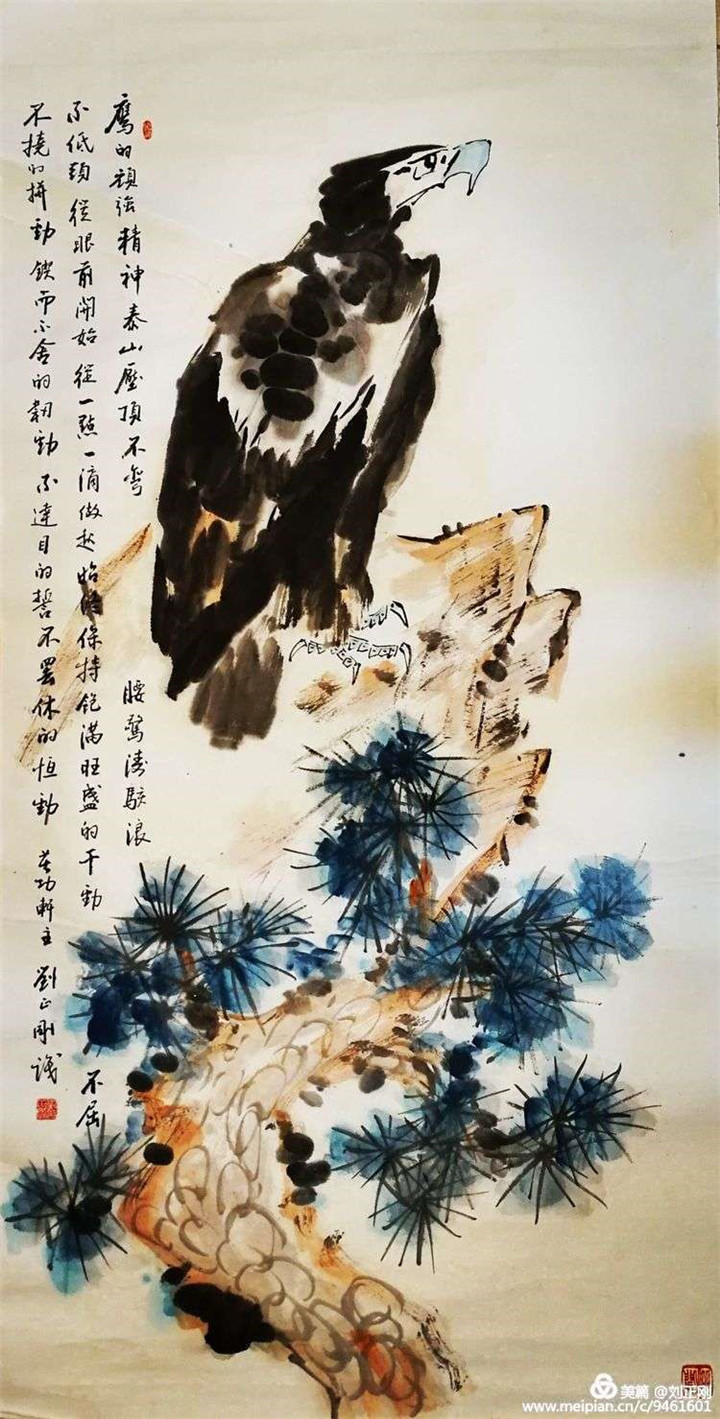 鷹的頑強精神泰山壓頂不彎腰驚濤駭浪
不低頭從眼前開始從一點一滴做起始終保持飽滿旺盛的干勁不屈
不撓的拼勁鍥而不舍的韌勁不達目的誓不罷休的恒勁 功軒主 劉正剛識
美篇 @刘正刚
www.meipian.cn/c/9461601